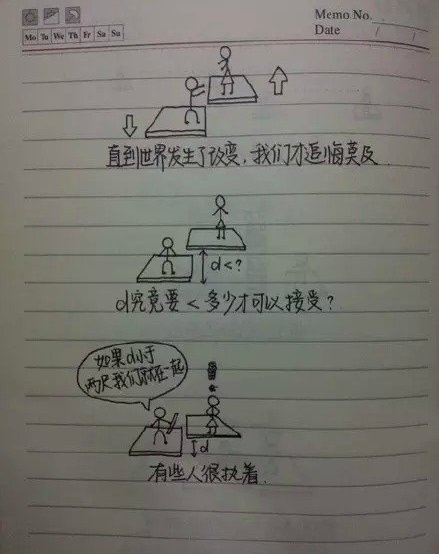 Memo No.
Mo Tu We Th Fr Sa Su
Date / /
直到世界发生了改变,我们才追悔莫及
d<?
d究竟要<多少才可以接受?
如果d小于
两尺我们就在一起
!
d
有些人很执着.